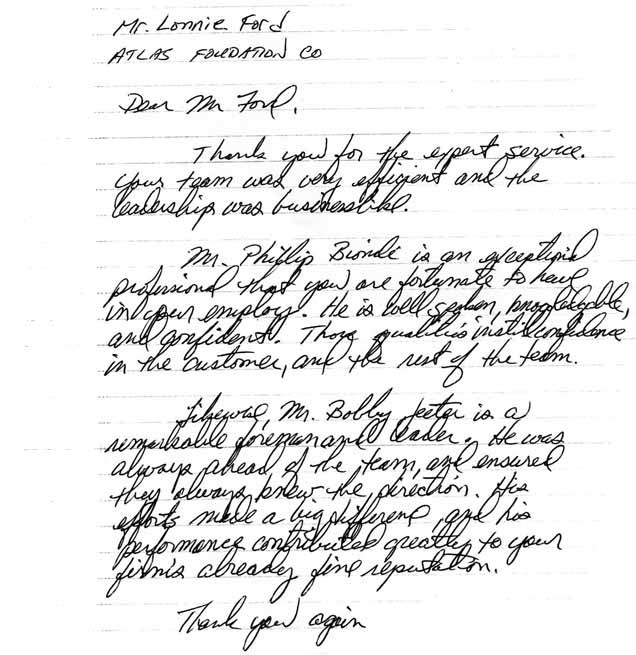 Mr. Lonnie Ford
ATLAS FOUNDATION CO
Dear Mr Ford,
Thank you for the expert service.
Your team was very efficient and the
leadership was businesslike.
Mr. Phillip Biondi is an exceptional
professional that you are fortunate to have
in your employ. He is well spoken, knowledgable,
and confident. Those qualities instill confidence
in the customer, and the rest of the team.
Likewise, Mr. Bobby Jeeter is a
remarkable foreman and leader. He was
always ahead of the team, and ensured
they always knew the direction. His
efforts made a big different, and his
performance contributed greatly to your
firm's already fine reputation.
Thank you again